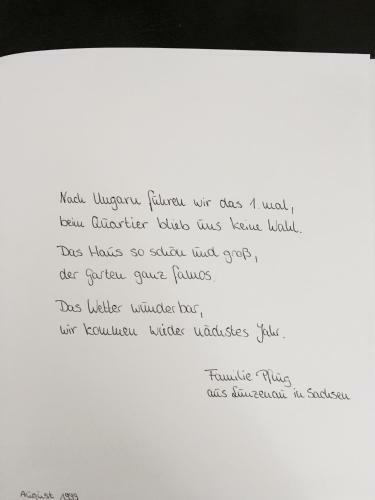 Nach Ungarn führen wir das 1. mal,
beim Quartier blieb uns keine Wahl.
Das Haus so schön und groß,
der Garten ganz famos.
Das Wetter wunderbar,
wir kommen wieder nächstes Jahr.
Familie Pflüg
aus Lunzenau in Sachsen
August 1999